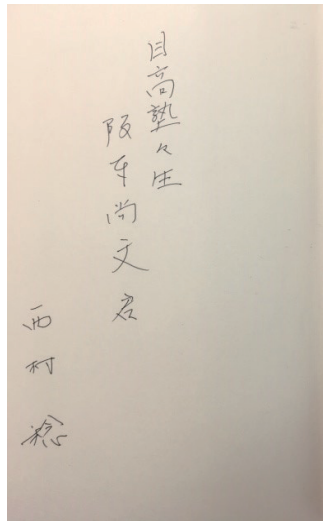 目高塾々生
阪本尚文君
西村 稔